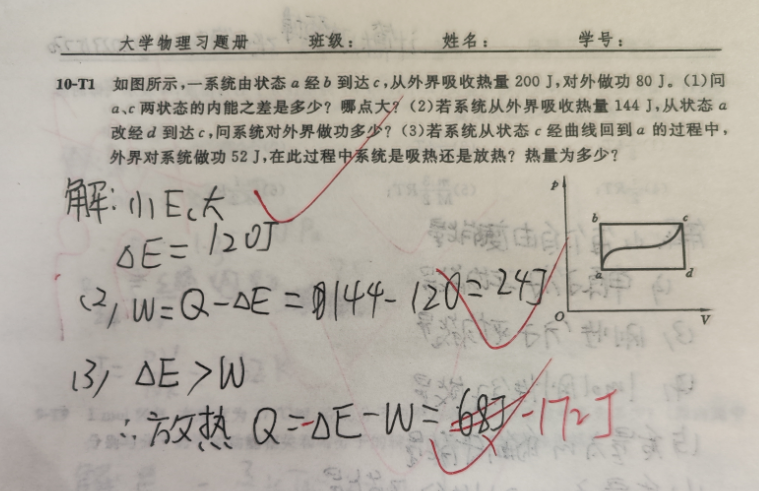 大学物理习题册 班级： 姓名： 学号：
10-T1 如图所示,一系统由状态 a 经 b 到达 c,从外界吸收热量 200 J,对外做功 80 J。(1)问
a、c 两状态的内能之差是多少? 哪点大? (2)若系统从外界吸收热量 144 J,从状态 a
改经 d 到达 c,问系统对外界做功多少? (3)若系统从状态 c 经曲线回到 a 的过程中,
外界对系统做功 52 J,在此过程中系统是吸热还是放热? 热量为多少?
解: (1) Ec大
ΔE = 120J
(2) W = Q - ΔE = 144 - 120 = 24J
(3) ΔE > W
∴放热 Q = -ΔE - W = 68J -172J
p
b c
a d
O V